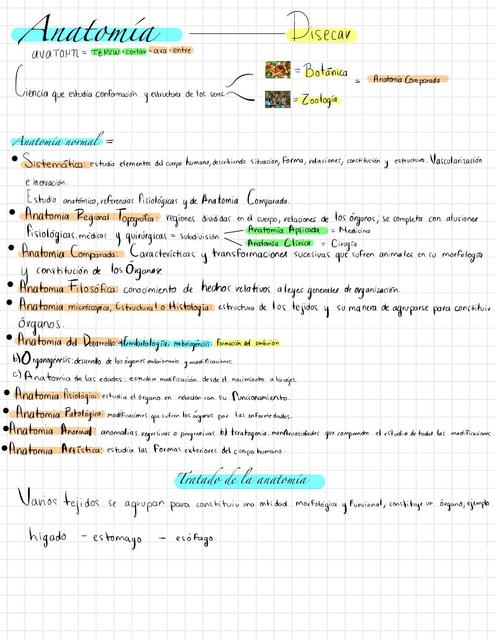 Anatomía — Disecar
avatomn = TEMVW = cortar - ava = entre
= Botánica
= Anatomia Comparada
Ciencia que estudia conformación y estructura de los seres
= Zoología
Anatomía normal =
• Sistemática: estudia elementos del cuerpo humano, describiendo situación, forma, relaciones, constitución y estructura. Vascularización
e inervación.
Estudio anatómico, referencias Fisiológicas y de Anatomia Comparada.
• Anatomia Regional Topográfica: regiones divididas en el cuerpo, relaciones de los órganos, se completa con alusiones
Fisiológicas, médicas y quirúrgicas = Subdivisión
Anatomia Aplicada = Medicina
Anatomia Clínica = Cirugía
• Anatomia Comparada: Características y transformaciones sucesivas que sufren animales en su morfología
y constitución de los Órganos
• Anatomia Filosófica: conocimiento de hechos relativos a leyes generales de organización.
• Anatomia microscópica, Estructural o Histología: estructura de los tejidos y su manera de agruparse para constituir
órganos.
• Anatomia del Desarrollo: Embriología, embriogénesis: Formación del embrión
b) Organogenesis: desarrollo de los órganos embrionarios y modificaciones.
c) Anatomia de las edades: estudia modificación desde el nacimiento a la vejez.
• Anatomia Fisiológica: estudia el órgano en relación con su Funcionamiento.
• Anatomia Patológica: modificaciones que sufren los órganos por las enfermedades.
• Anatomia Anormal: anomalias regresivas o progresivas b) teratogenia: monstruosidades que comprenden el estudio de todas las modificaciones.
• Anatomia Artística: estudia las Formas exteriores del cuerpo humano.
Tratado de la anatomía
Varios tejidos se agrupan para constituir una entidad morfológica y Funcional, constituye un órgano, ejemplo
hígado - estomago - esófago.